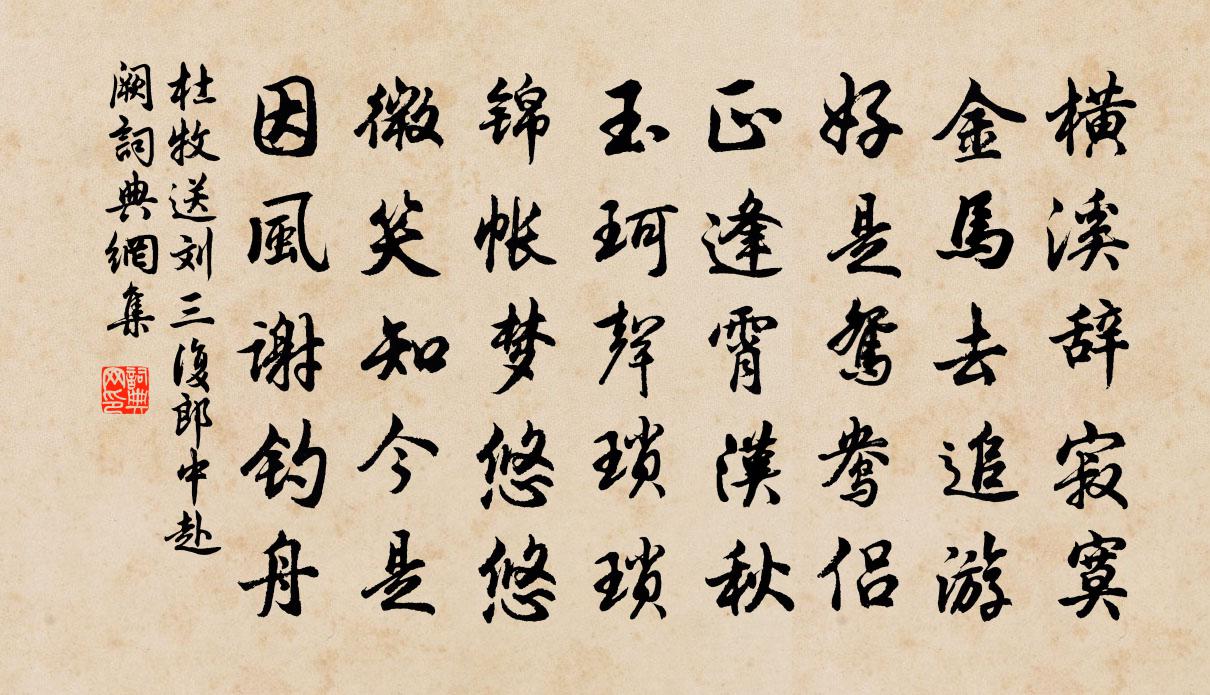 横溪辞寂寞
金馬去追游
好是鴛鴦侣
正逢霄漢秋
玉珂聲琐琐
锦帐梦悠悠
微笑知今是
因風谢钓舟
杜牧送刘三復郎中赴
阙詞典網集
詞典网印